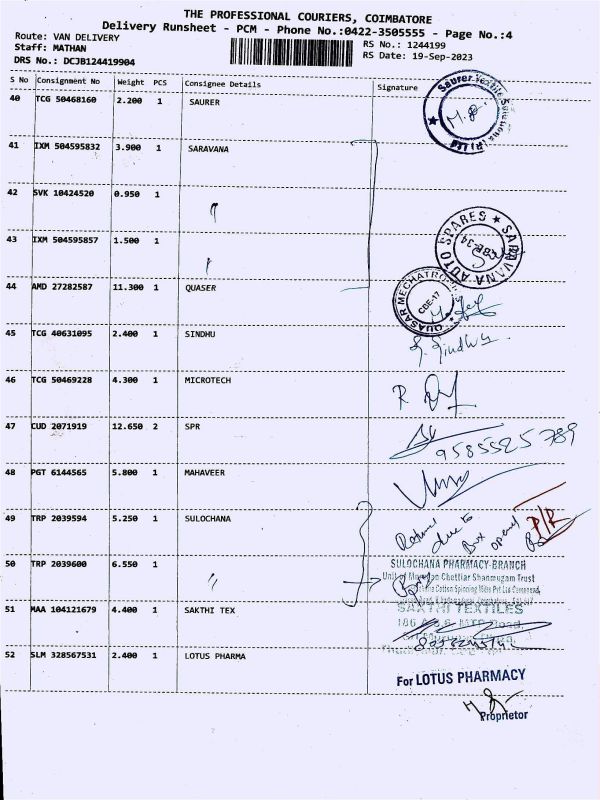 THE PROFESSIONAL COURIERS, COIMBATORE
Delivery Runsheet - PCM - Phone No.:0422-3505555 - Page No.:4
Route: VAN DELIVERY
Staff: MATHAN
DRS No.: DCJB124419904
RS No.: 1244199
RS Date: 19-Sep-2023
S No Consignment No Weight PCS Consignee Details Signature
40 TCG 50468160 2.200 1 SAURER
Saurer Textile Solutions (P) Ltd
41 IXM 504595832 3.900 1 SARAVANA
42 SVK 10424520 0.950 1 〃
43 IXM 504595857 1.500 1 〃
SARAVANA AUTO SPARES
44 AMD 27282587 11.300 1 QUASER
QUASAR MECHATRO
CBE-17
45 TCG 40631095 2.400 1 SINDHU
G. Sindhu
46 TCG 50469228 4.300 1 MICROTECH
47 CUD 2071919 12.650 2 SPR
9585525789
48 PGT 6144565 5.800 1 MAHAVEER
49 TRP 2039594 5.250 1 SULOCHANA
Return due to Box opened
P/R
50 TRP 2039600 6.550 1 〃
SULOCHANA PHARMACY-BRANCH
Chettiar Shanmugam Trust
Cotton Spinning Mills Pvt Ltd
51 MAA 104121679 4.400 1 SAKTHI TEX
SAKTHI TEXTILES
MTP Road,
52 SLM 328567531 2.400 1 LOTUS PHARMA
For LOTUS PHARMACY
Proprietor